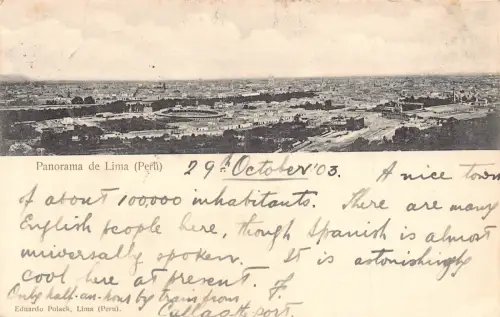 Panorama de Lima (Perú)
29th October '03. A nice town
of about 100,000 inhabitants. There are many
English people here, though Spanish is almost
universally spoken. It is astonishingly
cool here at present. F.
Only half-an-hours by train from
Callao the port.
Eduardo Polack, Lima (Peru).